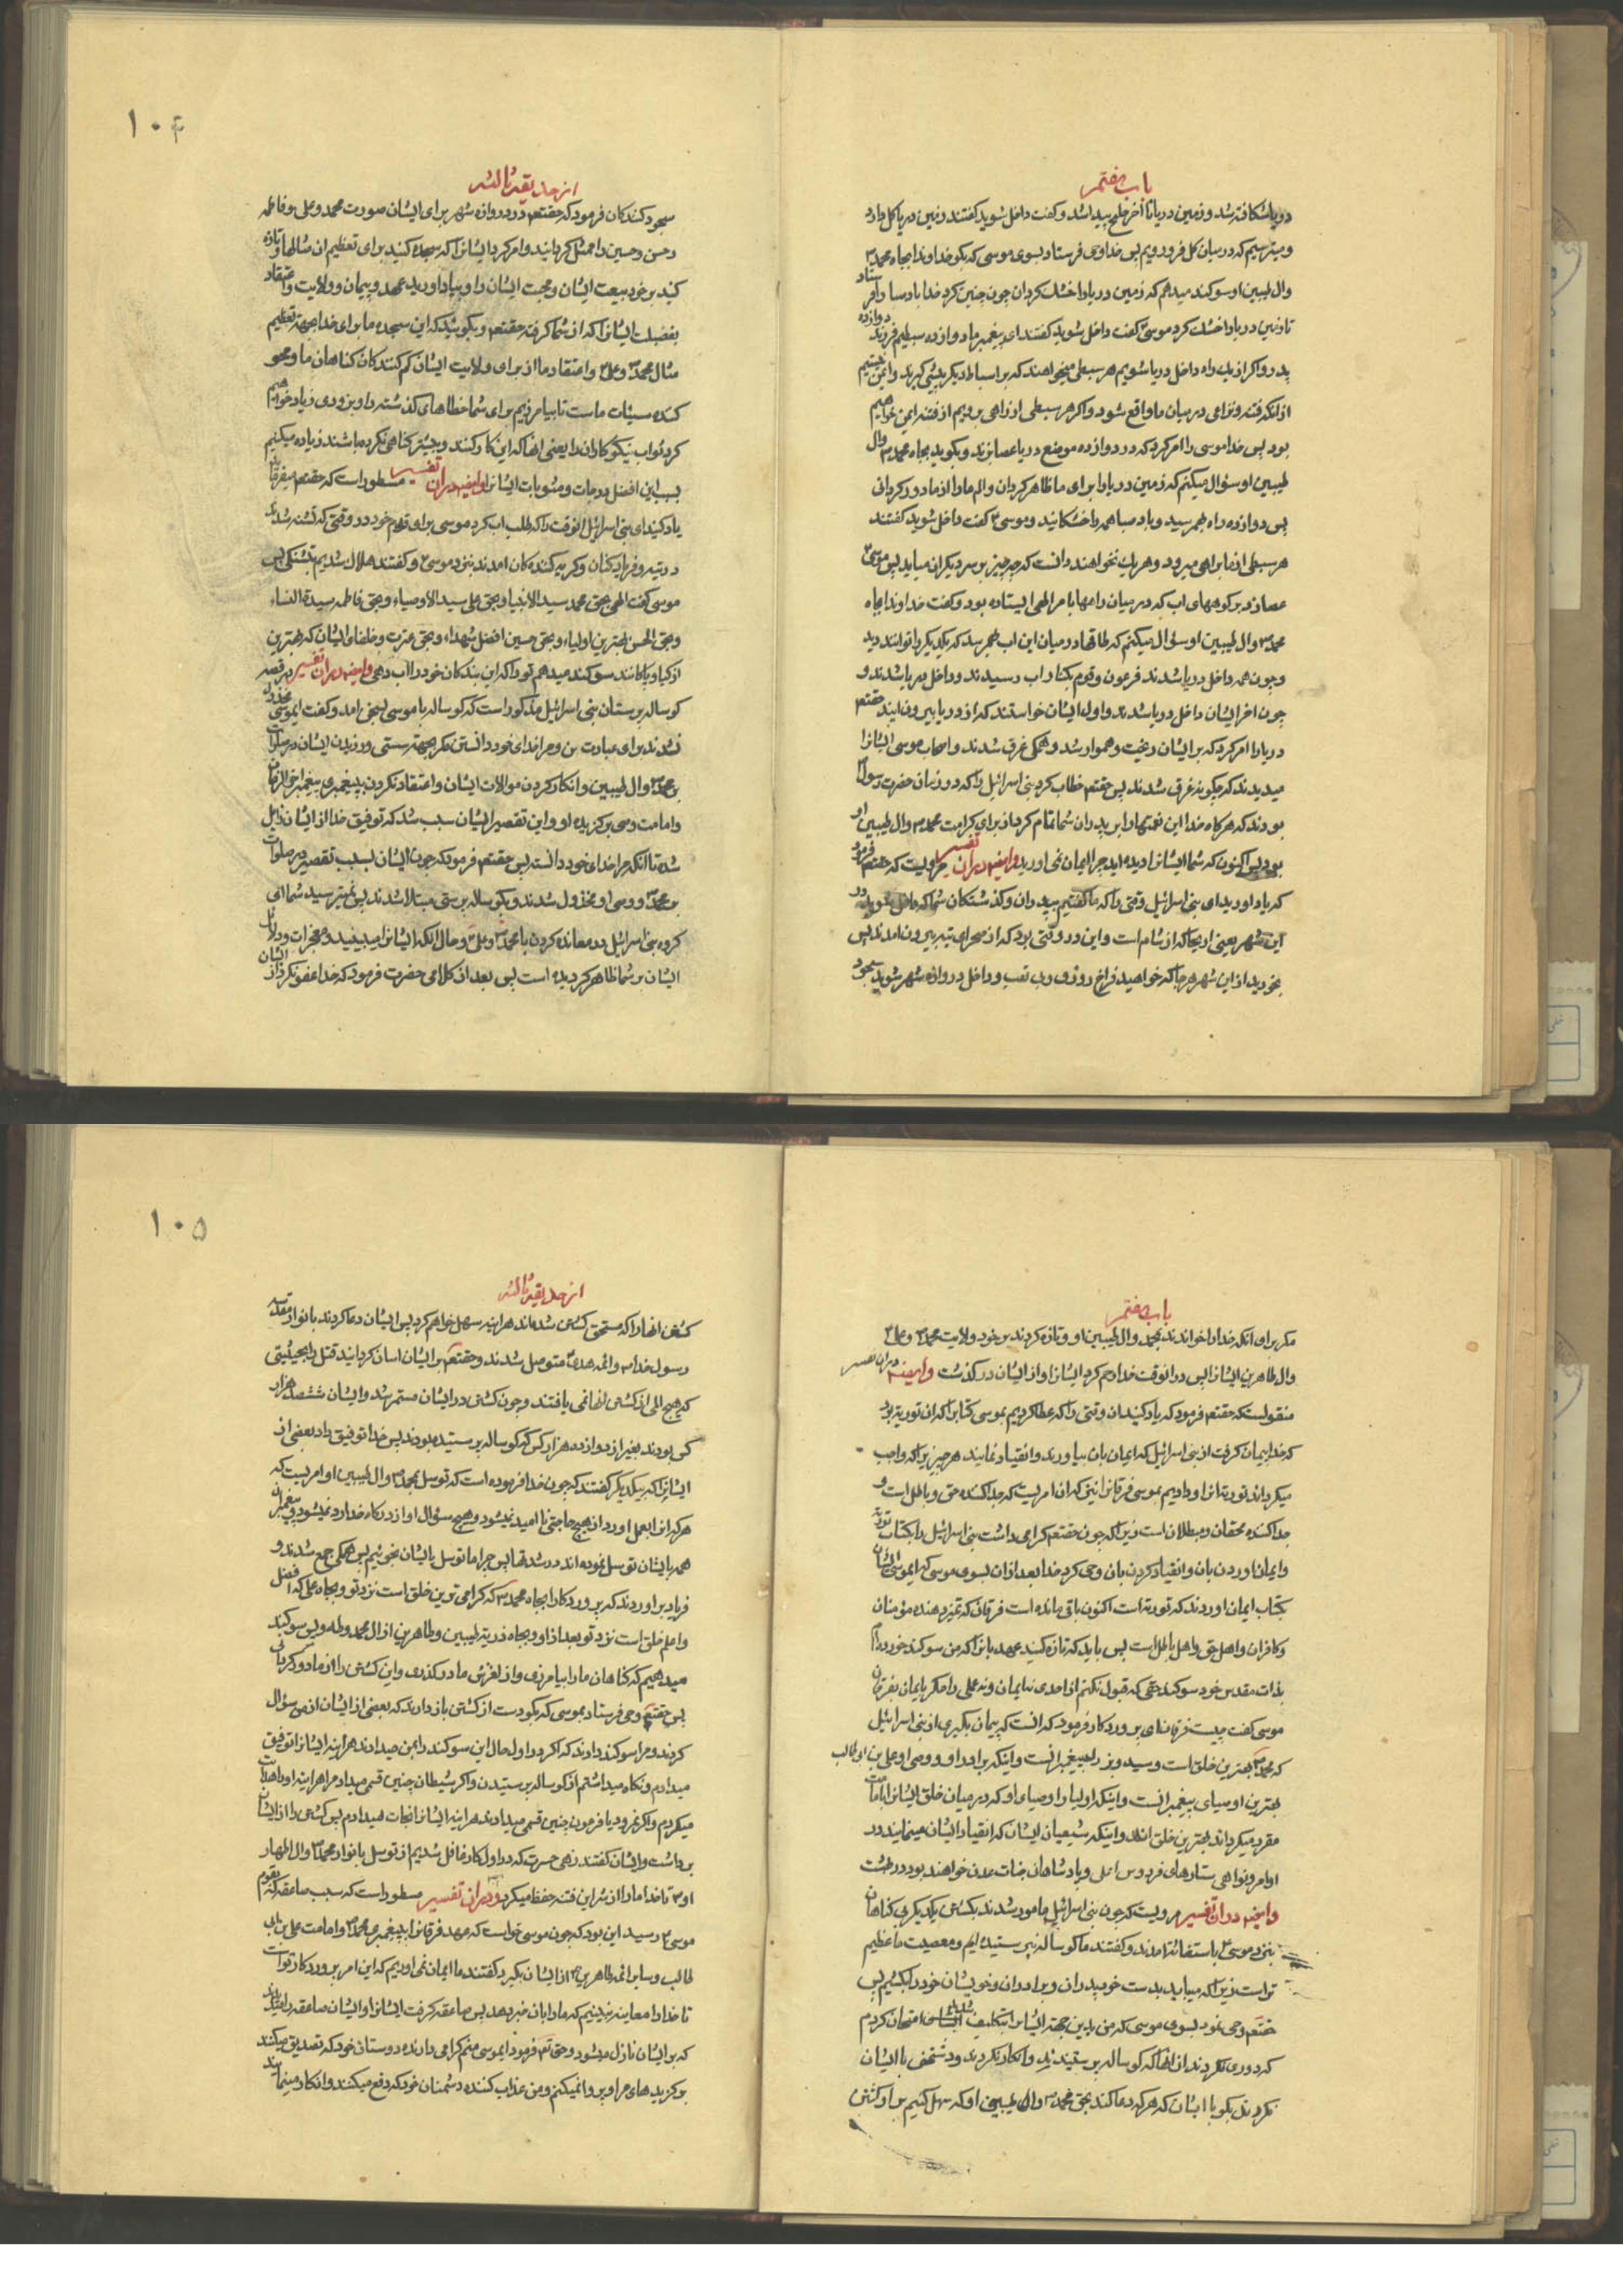 باب هفتم
دریا شکافته شد و زمین دریا تا آخر خلیج پیدا شد و گفت داخل شوید گفتند زمین دریا گل دارد
و میترسیم که در میان گل فرو رویم پس خدا وحی فرستاد بسوی موسی که بگو خداوندا بجاه محمد ص
وال طیبین او سوکند میدهم که زمین دریا را خشک کردان چون چنین کرد خدا باد صبا را فرستاد
تا زمین دریا را خشک کرد موسی ع گفت داخل شوید گفتند ای پیغمبر ما دوازده سبطیم فرزند دوازده
پدر و اکر از یک راه داخل دریا شویم هر سبطی میخواهند که بر اسباط دیگر پیشی گیرند و ایمن نیستیم
از آنکه فتنه و نزاعی در میان ما واقع شود و اکر هر سبطی از راهی برویم از فتنه ایمن خواهیم
بود پس خدا موسی را امر کرد که در دوازده موضع دریا عصا بزند و بگوید بجاه محمد ص وال
طیبین او سؤال میکنم که زمین دریا را برای ما ظاهر کردان و الم ما را از ما دور کردانی
پس دوازده راه بهم رسید و باد صبا همه را خشکانید و موسی ع گفت داخل شوید گفتند
هر سبطی از ما براهی میرود و هر یک نخواهند دانست که چه چیز بر سر دیگران میاید پس موسی ع
عصا زد بر کوههای اب که در میان راهها بامر الهی ایستاده بود و گفت خداوندا بجاه
محمد ص وال طیبین او سؤال میکنم که طاقها در میان این اب بهم رسد که یکدیگر را توانند دید
و چون همه داخل دریا شدند فرعون و قوم بکنار اب رسیدند و داخل دریا شدند و
چون اخر ایشان داخل دریا شدند و اول ایشان خواستند که از دریا بیرون ایند حقتعم
دریا را امر کرد که بر ایشان ریخت و هموار شد و همگی غرق شدند و اصحاب موسی ایشانرا
میدیدند که چگونه غرق شدند پس حقتعم خطاب کرد بنی اسرائیل را که در زمان حضرت رسول ص
بودند که هرگاه خدا این نعمتها را بر پدران شما تمام کرد از برای کرامت محمد ص وال طیبین او
بود پس اکنون که شما ایشانرا دیده اید چرا ایمان نمی اورید وایضا در ان تفسیر مرویست که حقتعم فرمود
که یاد اورید ای بنی اسرائیل وقتی را که ما گفتیم بپدران و گذشتگان شما که داخل شوید در
این شهر یعنی اریحا که از شام است و این در وقتی بود که از صحرای تیه بیرون امدند پس
بخورید از این شهر هرجا که خواهید فراخ روزی و بی تعب و داخل دروازه شهر شوید سجود
۱۰۴
از حدیقه ثالثه
سجود کنندکان فرمود که حقتعم در دروازه شهر برای ایشان صورت محمد و علی و فاطمه
و حسن و حسین را ممثل گردانید و امر کرد ایشانرا که سجده کنید برای تعظیم ان مثالها و تازه
کنید بر خود بیعت ایشان و محبت ایشان را و بیاد اورید عهد و پیمان و ولایت و اعتقاد
بفضیلت ایشانرا که از شما گرفته حقتعم و بگوئید که این سجده ما برای خدا بجهة تعظیم
مثال محمد ص و علی ع و اعتقاد ما از برای ولایت ایشان کم کنندکان گناهان ما و محو
کننده سیئات ماست تا بیامرزیم برای شما خطاهای گذشته را و بزودی زیاد خواهیم
کرد ثواب نیکوکاران را یعنی انها که این کار کنند و پیشتر گناهی نکرده باشند زیاده میکنیم
بسبب این افضل درجات و مثوبات ایشانرا وایضا در ان تفسیر مسطور است که حقتعم میفرماید
یاد کنید ای بنی اسرائیل انوقت را که طلب اب کرد موسی برای قوم خود در وقتی که تشنه شدند
در تیه و فریاد کنان و گریه کننده کان امدند بنزد موسی ع و گفتند هلاک شدیم بتشنگی پس
موسی گفت الهی بحق محمد سید الانبیا و بحق علی سید الاوصیاء و بحق فاطمه سیدة النساء
و بحق الحسن بهترین اولیاء و بحق حسین افضل شهداء و بحق عترت و خلفای ایشان که بهترین
ازکیا و پاکانند سوکند میدهم تو را که این بندکان خود را اب دهی وایضا در ان تفسیر در قصه
گوساله پرستان بنی اسرائیل مذکور است که گوساله با موسی بسخن امد و گفت ایموسی مخذول
نشدند برای عبادت من و مرا خدای خود دانستن مگر بجهة سستی ورزیدن ایشان در صلوات
بر محمد ص وال طیبین و انکار کردن موالات ایشان و اعتقاد نکردن به پیغمبری پیغمبر اخر الزمان
و امامت وصی برگزیده او و این تقصیر ایشان سبب شد که توفیق خدا از ایشان زایل
شد تا انکه مرا خدای خود دانستند پس حقتعم فرمود که چون ایشان بسبب تقصیر در صلوات
بر محمد ص و وصی او مخذول شدند و بگوساله پرستی مبتلا شدند پس نمیترسید شما ای
گروه بنی اسرائیل در معانده کردن با محمد ص و علی ع و حال انکه ایشانرا میبینید و معجزات و دلائل
ایشان بر شما ظاهر گردیده است پس بعد از کلامی حضرت فرمود که خدا عفو نکرد از ایشان
باب هفتم
مگر برای انکه خدا را خواندند بمحمد وال طیبین او و تازه کردند بر خود ولایت محمد ص و علی ع
وال طاهرین ایشانرا پس در انوقت خدا رحم کرد ایشانرا و از ایشان در گذشت وایضا در ان تفسیر
منقولست که حقتعم فرمود که یاد کنید ان وقتی را که عطا کردیم بموسی کتابرا که ان توریة بود
که خدا پیمان گرفت از بنی اسرائیل که ایمان بان بیاورند و انقیاد نمایند هر چیزیرا که واجب
میگرداند توریة انرا و دادیم بموسی فرقانرا نیز که ان امریست که جدا کننده حق و باطل است و
جدا کننده محقان و مبطلان است زیرا که چون حقتعم گرامی داشت بنی اسرائیل را بکتاب توریة
و ایمان اوردن بان و انقیاد کردن بان وحی کرد خدا بعد از ان بسوی موسی که ایموسی ایشان
بکتاب ایمان اوردند که توریة است اکنون باقی مانده است فرقان که تمیز دهنده مؤمنان
و کافران و اهل حق و اهل باطل است پس باید که تازه کنید عهد بانرا که من سوکند خورده ام
بذات مقدس خود سوکند حقی که قبول نکنم از احدی نه ایمان و نه عملی را مگر بایمان بفرقان
موسی گفت چیست فرقان ای پروردگار فرمود که انست که پیمان بگیری از بنی اسرائیل
که محمد ص بهترین خلق است و سید پیغمبرانست و اینکه برادر او و وصی او علی بن ابوطالب
بهترین اوصیای پیغمبرانست و اینکه اولیا و اوصیای او که در میان خلق ایشانرا بامامت
مقرر میگرداند بهترین خلق اند و اینکه شیعیان ایشان که انقیاد ایشان مینمایند در
اوامر و نواهی ستارهای فردوس اعلی و پادشاهان جنات عدن خواهند بود در بهشت
وایضا در ان تفسیر مرویست که چون بنی اسرائیل مامور شدند بکشتن یکدیگر بی گناهان
بنزد موسی ع باستغاثه امدند و گفتند ما گوساله نپرستیده ایم و معصیت ما عظیم
تر است زیرا که میباید بدست خود پدران و برادران و خویشان خود را بکشیم پس
حقتعم وحی نمود بسوی موسی که من بدین جهة ایشانرا بتکلیف امتحان کردم
که دوری نکردند از انها که گوساله پرستیدند و انکار نکردند و دشمنی با ایشان
نکردند بگو با ایشان که هر که دعا کند بحق محمد ص وال طیبین او که سهل کنیم بر او کشتن
۱۰۵
از حدیقه ثالثه
کشتن انها را که مستحق کشتن شده اند هراینه سهل خواهم کرد پس ایشان دعا کردند بانوار مقدسه
رسول خدا ص و ائمه هدی ع متوسل شدند و حقتعم بر ایشان اسان گردانید قتل را بحیثیتی
که هیچ المی از کشتن انها نمی یافتند و چون کشتن در ایشان مستمر شد و ایشان ششصد هزار
کس بودند بغیر از دوازده هزار کس که گوساله نپرستیده بودند پس خدا توفیق داد بعضی از
ایشانرا که بیکدیگر گفتند که چون خدا فرموده است که توسل بمحمد ص وال طیبین او امریست که
هر که انرا بعمل اورد از هیچ حاجتی نا امید نمیشود و هیچ سؤال او از درگاه خدا رد نمیشود و پیغمبران
همه بایشان توسل نموده اند در شدتها پس چرا ما توسل بایشان نجوئیم پس همگی جمع شدند و
فریاد براوردند که پروردگارا بجاه محمد ص که گرامی ترین خلق است نزد تو و بجاه علی که افضل
و اعلم خلق است نزد تو بعد از او و بجاه ذریه طیبین و طاهرین از ال محمد و طه و یس سوکند
میدهیم که گناهان ما را بیامرزی و از لغزش ما در گذری و این کشتن را از ما دور گردانی
پس حقتعم وحی فرستاد بموسی که بگو دست از کشتن باز دارند که بعضی از ایشان از من سؤال
کردند و مرا سوکند دادند که اگر در اول حال این سوکند را بمن میدادند هراینه ایشانرا توفیق
میدادم و نگاه میداشتم از گوساله پرستیدن و اگر شیطان چنین قسمی میداد مرا هراینه او را هدایت
میکردم و اگر نمرود یا فرعون چنین قسمی میدادند هراینه ایشانرا نجات میدادم پس کشتن را از ایشان
برداشت و ایشان گفتند زهی حسرت که در اول کار غافل شدیم از توسل بانوار محمد ص وال اطهار
او ع تا خدا ما را از شر این فتنه حفظ میکرد و در ان تفسیر مسطور است که سبب صاعقه که بقوم
موسی ع رسید این بود که چون موسی خواست که عهد فرقانرا بپیغمبری محمد ص و امامت علی بن ابی
طالب و سایر ائمه طاهرین ع از ایشان بگیرد گفتند ما ایمان نمی اوریم که این امر پروردگار تو است
تا خدا را معاینه نبینیم که ما را بان خبر بدهد پس صاعقه گرفت ایشانرا و ایشان صاعقه را میدیدند
که بر ایشان نازل میشود و حق تعم فرمود ایموسی منم گرامی دارنده دوستان خود که تصدیق میکنند
برگزیدهای مرا و پروا نمیکنم و من عذاب کننده دشمنان خود که دفع میکنند و انکار مینمایند